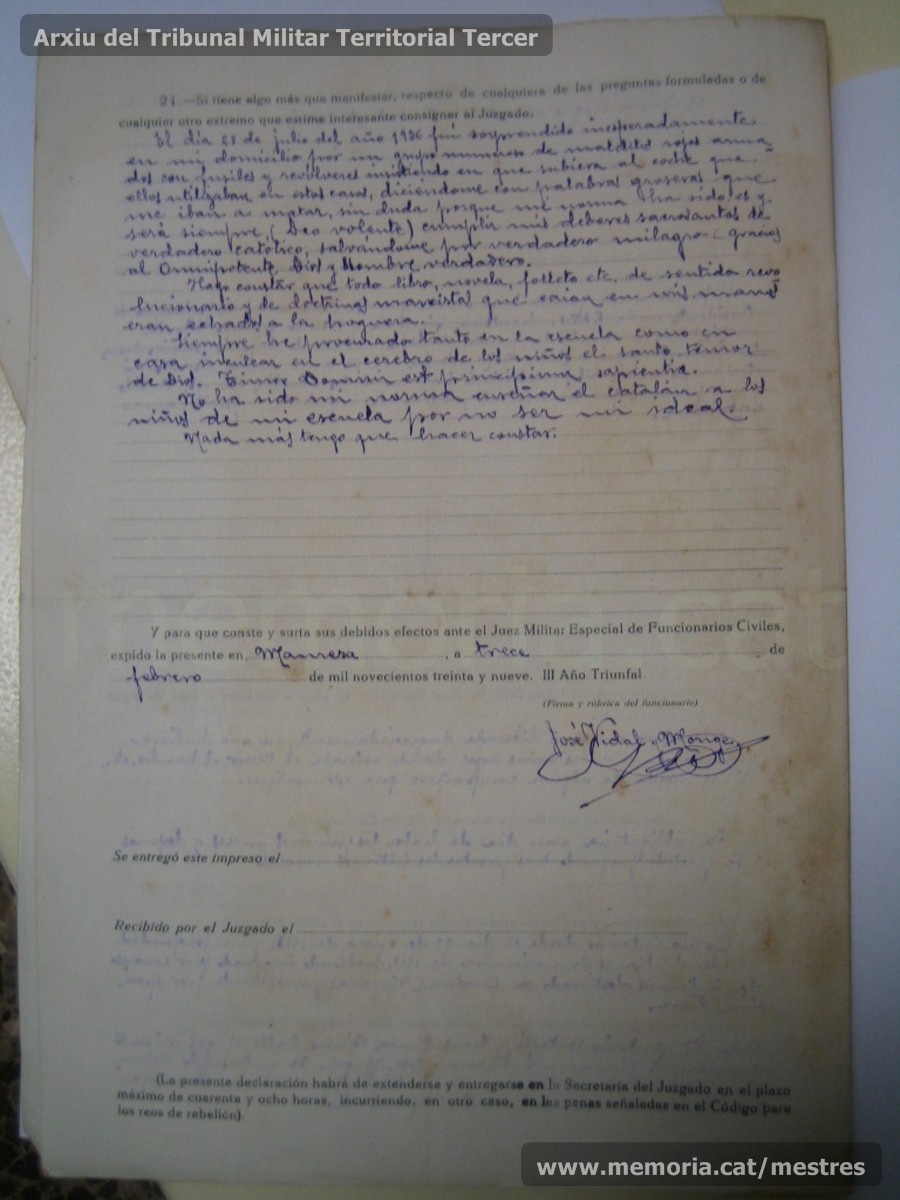 Arxiu del Tribunal Militar Territorial Tercer
21.—Si tiene algo más que manifestar, respecto de cualquiera de las preguntas formuladas o de
cualquier otro extremo que estime interesante consignar al Juzgado.
El día 28 de julio del año 1936 fuí sorprendido inesperadamente
en mi domicilio por un grupo numeroso de malditos rojos arma-
dos con fusiles y revólveres insistiendo en que subiera al coche que
ellos utilizaban en estos casos, diciéndome con palabras groseras que
me iban a matar, sin duda porque mi norma ha sido, es y
será siempre (Deo volente) cumplir mis deberes sacrosantos de
verdadero católico, salvándome por verdadero milagro gracias
al Omnipotente, Dios y Hombre verdadero.
Hago constar que todo libro, novela, folleto etc. de sentido revo-
lucionario y de doctrinas marxistas que caían en mis manos
eran echados a la hoguera.
Siempre he procurado tanto en la escuela como en
casa inculcar en el cerebro de los niños el santo temor
de Dios. Timor Domini est principium sapientia.
No ha sido mi norma enseñar el catalán a los
niños de mi escuela por no ser mi ideal
Nada más tengo que hacer constar.
memoria.cat
Y para que conste y surta sus debidos efectos ante el Juez Militar Especial de Funcionarios Civiles,
expido la presente en Manresa, a trece de
febrero de mil novecientos treinta y nueve. III Año Triunfal
(Firma y rúbrica del funcionario)
José Vidal y Monge
Se entregó este impreso el
Recibido por el Juzgado el
(La presente declaración habrá de extenderse y entregarse en la Secretaría del Juzgado en el plazo
máximo de cuarenta y ocho horas, incurriendo, en otro caso, en las penas señaladas en el Código para
los reos de rebelión).
www.memoria.cat/mestres